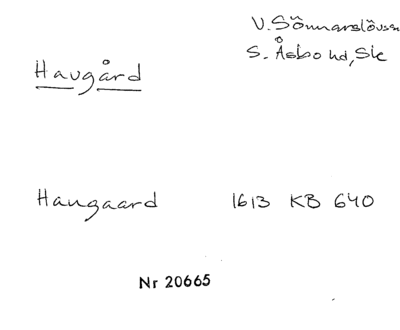 V. Sönnarslövs sn
S. Åsbo hd, Sk
Havgård
Haugaard 1613 KB 640
Nr 20665